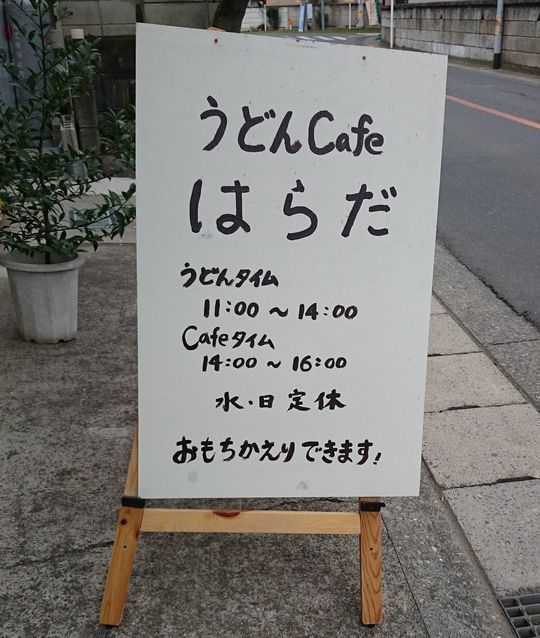 うどんCafe
はらだ
うどんタイム
11:00～14:00
Cafeタイム
14:00～16:00
水・日定休
おもちかえりできます!